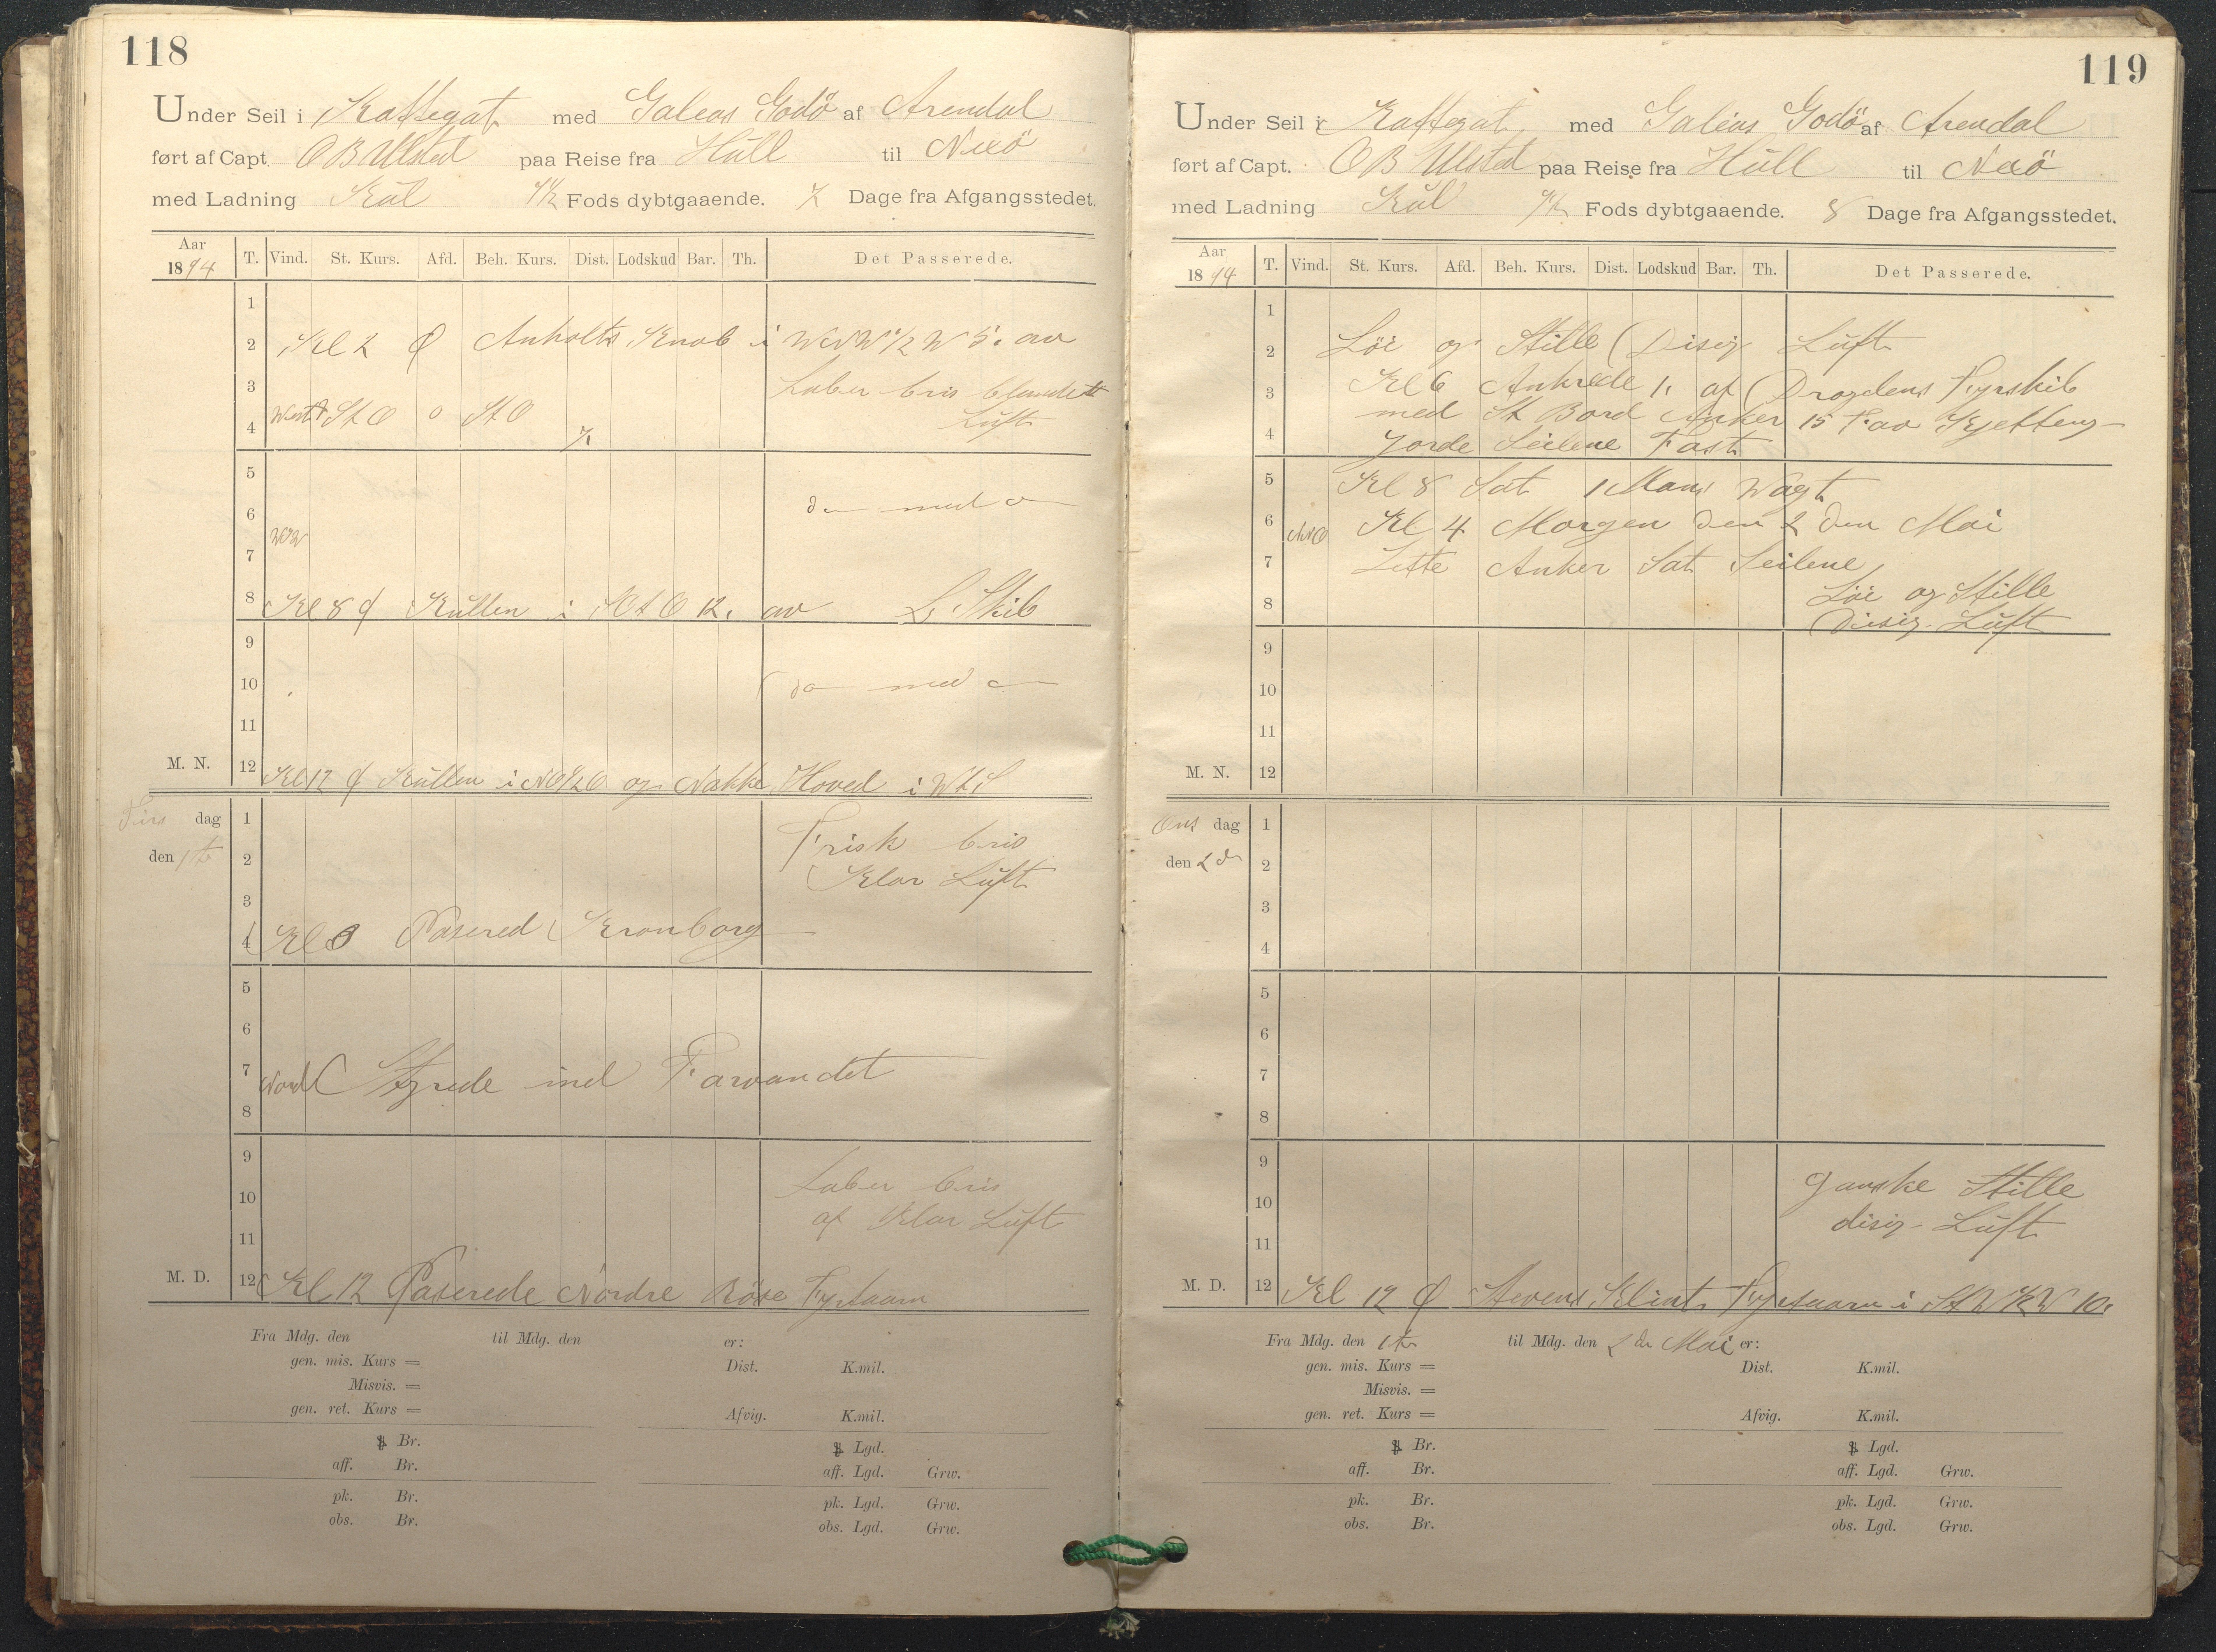 118
Under Seil i Kattegat med Galeas Godö af Arendal
ført af Capt. O B Ulstad paa Reise fra Hull til Nexö
med Ladning Kul 7½ Fods dybtgaaende. 7 Dage fra Afgangsstedet.
Aar 1894 T. Vind. St. Kurs. Afd. Beh. Kurs. Dist. Lodskud Bar. Th. Det Passerede.
1
2 Kl 2 Anholts Knob i WNW½W 5. av
3 Laber bris blandett
4 St O 0 St O 7. Luft
5
6 do med do
7
8 Kl 8 Kullen i 12. av Skib
9
10 do med do
11
M. N. 12 Kl 12 Kullen i NO½O og Nakke Hoved i WtS
Tirs dag 1
den 1te 2 Frisk bris
Klar Luft
3
4 Kl 3 Pasered Kronborg
5
6
7 Nord Styrede ind Farvandet
8
9
10 Laber bris
af Klar Luft
11
M. D. 12 Kl 12 Paserede Nordre Röse Fyrtaarn
Fra Mdg. den til Mdg. den er:
gen. mis. Kurs = Dist. K.mil.
Misvis. =
gen. ret. Kurs = Afvig. K.mil.
Br. Lgd.
aff. Br. aff. Lgd. Grw.
pk. Br. pk. Lgd. Grw.
obs. Br. obs. Lgd. Grw.
119
Under Seil i Kattegat med Galeas Godö af Arendal
ført af Capt. O B Ulstad paa Reise fra Hull til Nexö
med Ladning Kul 7½ Fods dybtgaaende. 8 Dage fra Afgangsstedet.
Aar 1894 T. Vind. St. Kurs. Afd. Beh. Kurs. Dist. Lodskud Bar. Th. Det Passerede.
1
2 Löi og Stille Disig Luft
3 Kl 6 Ankrede 1. af Drogdens Fyrskib
med St Bord Anker 15 F. av Kjetteng
4 Gjorde Seilene Fast
5 Kl 8 Sat 1 Mans Vagt
6 NNO Kl 4 Morgen den 2 den Mai
7 Lette Anker Sat Seilene
8 Löi og Stille
Disig Luft
9
10
11
M. N. 12
Ons dag 1
den 2 d 2
3
4
5
6
7
8
9
10 Ganske Stille
disig Luft
11
M. D. 12 Kl 12 Stevens Klint Fyrtaarn i 10.
Fra Mdg. den 1te til Mdg. den 2 de Mai er:
gen. mis. Kurs = Dist. K.mil.
Misvis. =
gen. ret. Kurs = Afvig. K.mil.
Br. Lgd.
aff. Br. aff. Lgd. Grw.
pk. Br. pk. Lgd. Grw.
obs. Br. obs. Lgd. Grw.